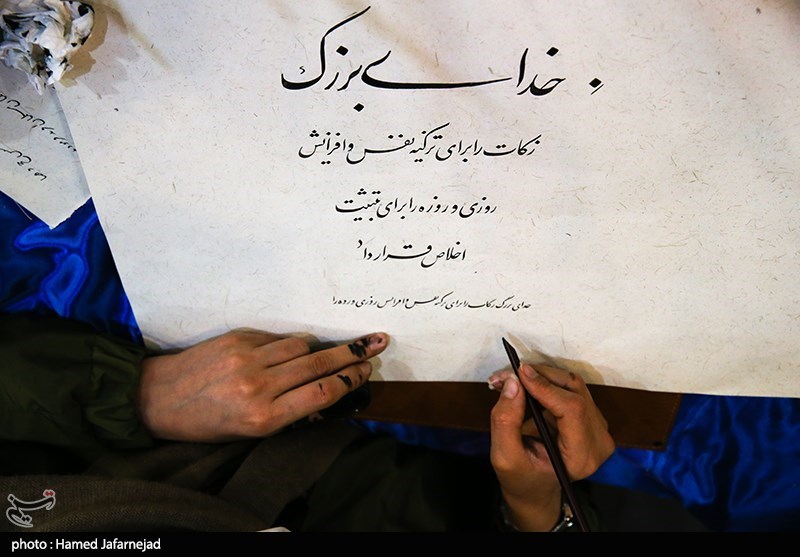 خدای بزرگ
زکات را برای تزکیه نفس و افزایش
روزی و روزه را برای تثبیت
اخلاص قرار داد
خدای بزرگ زکات را برای تزکیه نفس و افزایش روزی و روزه را
تسنیم
photo : Hamed Jafarnejad